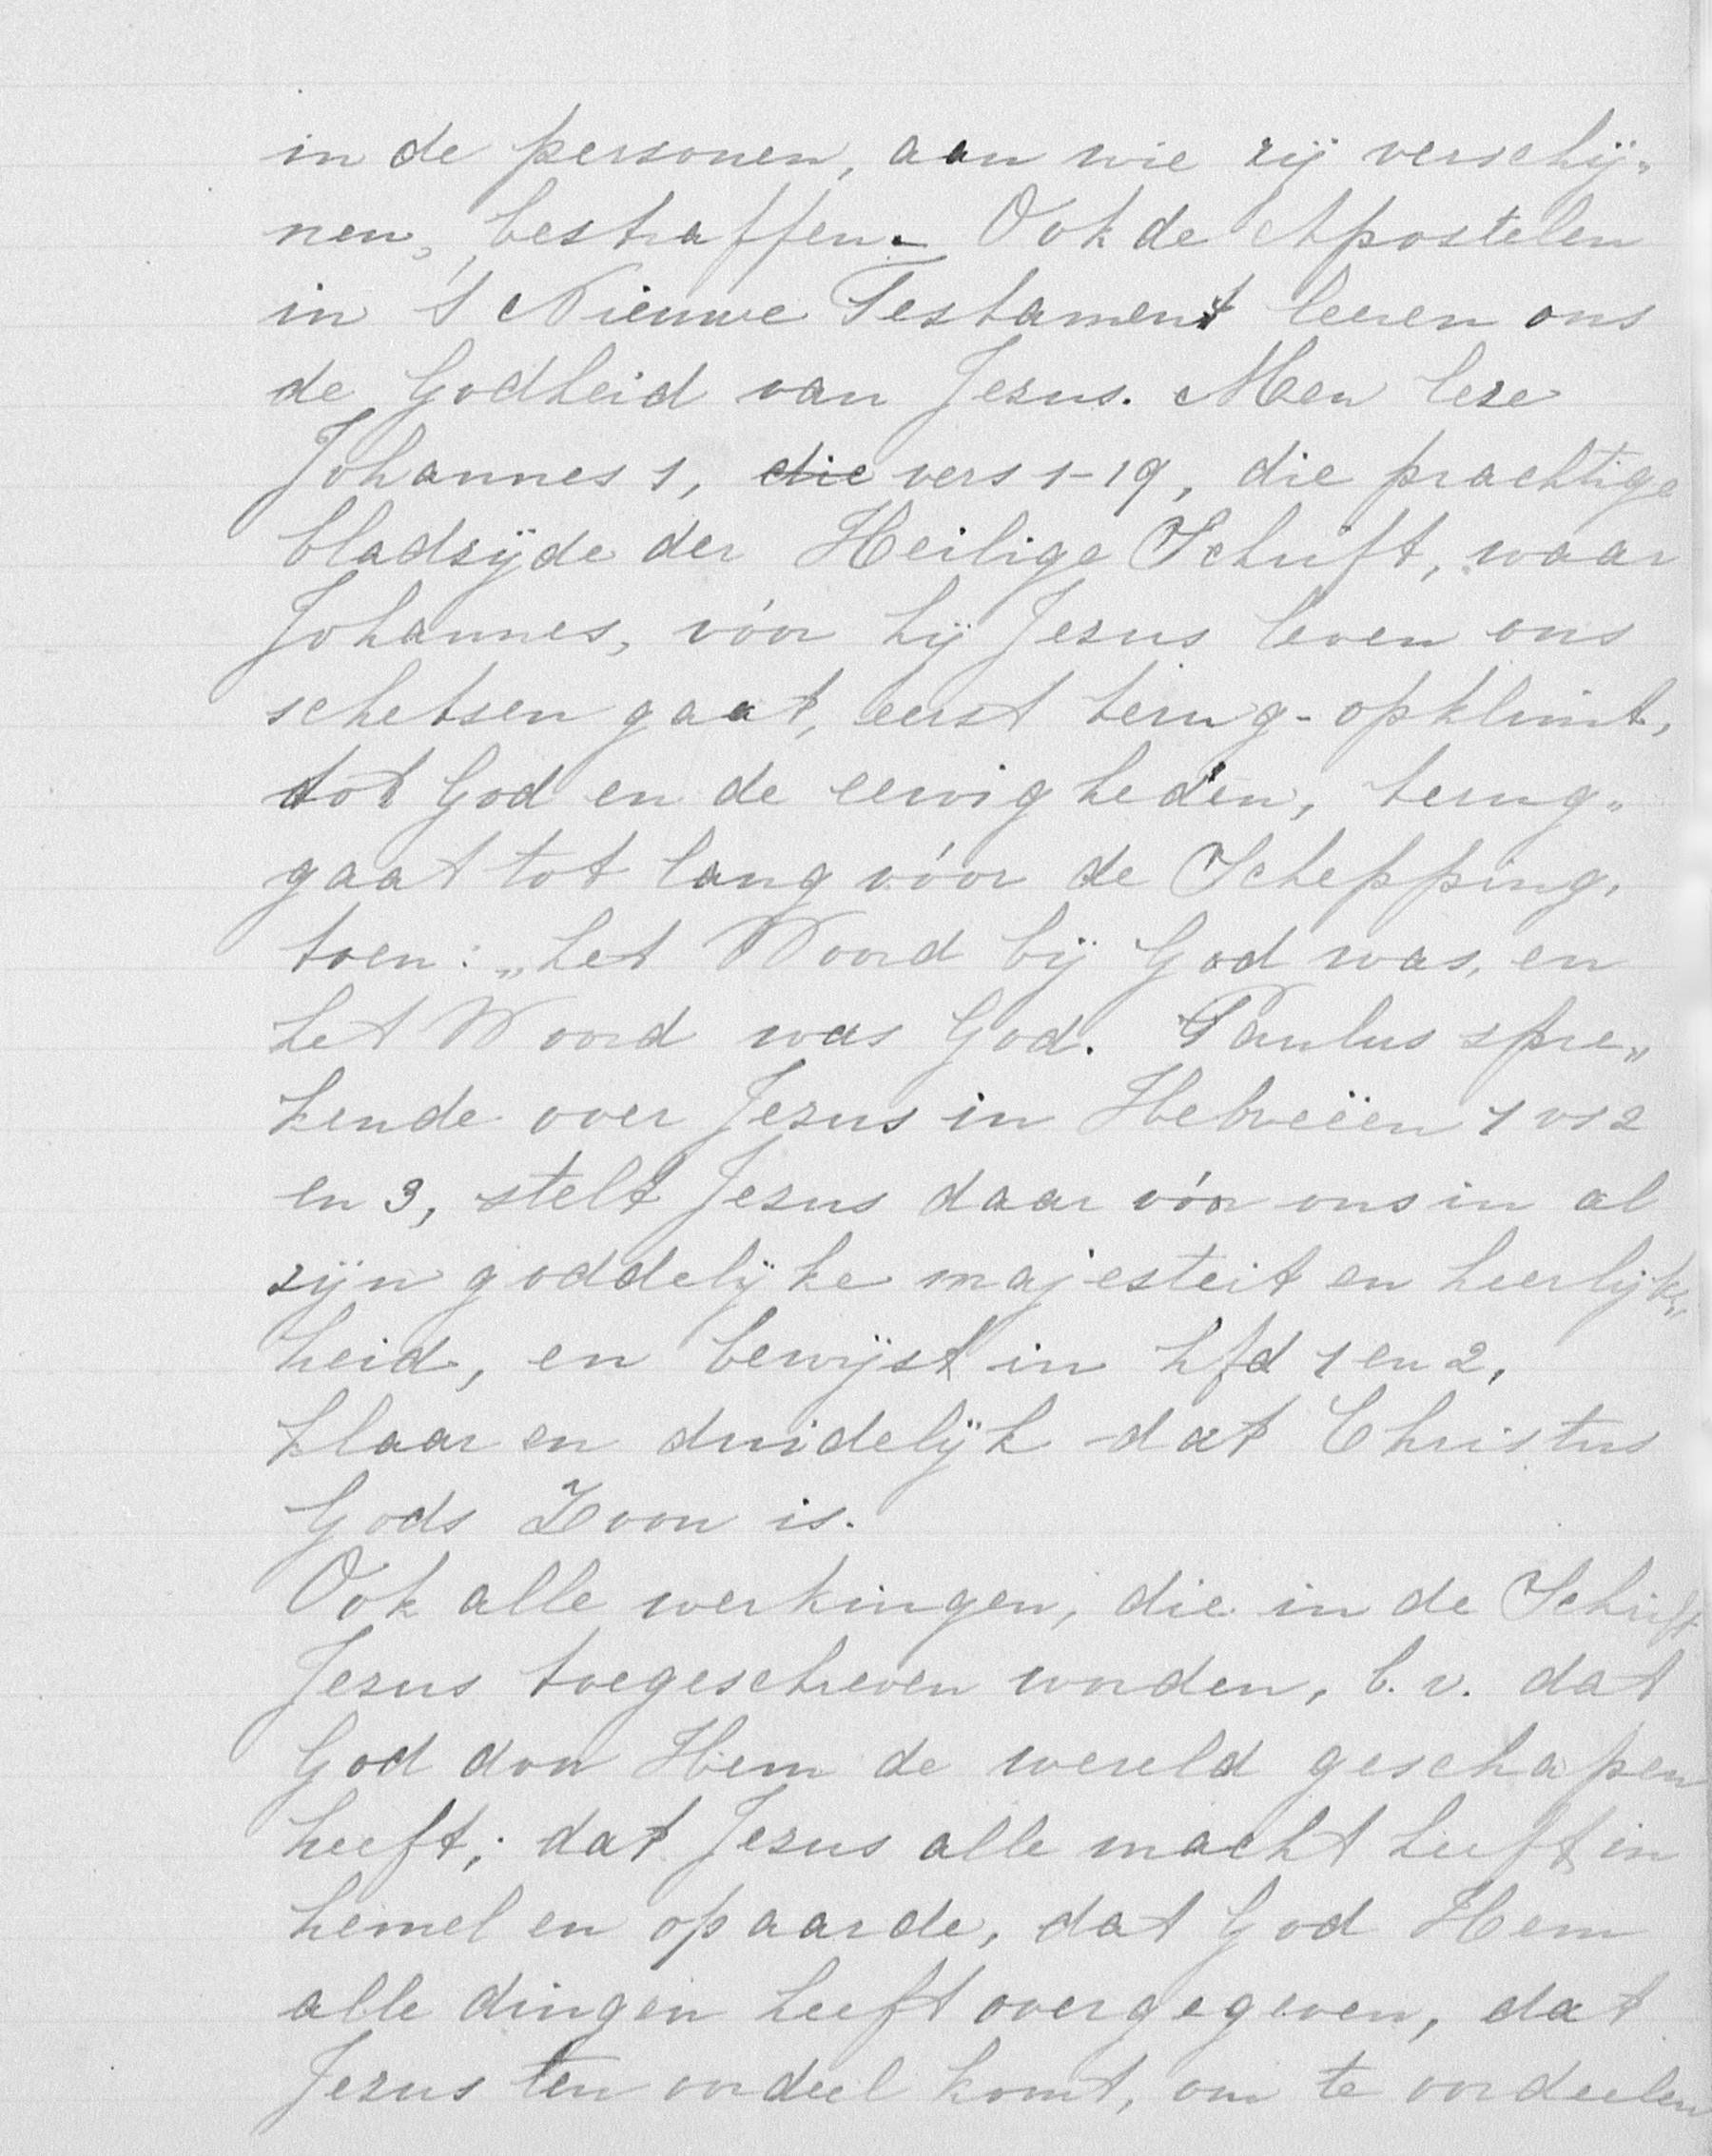 in de personen, aan wie zij verschij„
nen, bestraffen. Ook de Apostelen
in 't Nieuwe Testament leeren ons
de Godheid van Jezus. Men leze
Johannes 1, die vers 1-19, die prachtige
bladzijde der Heilige Schrift, waar
Johannes, vóor hij Jezus leven ons
schetsen gaat, eerst terug-opklimt,
tot God en de eeuwigheden, terug„
gaat tot lang vóor de Schepping,
toen: „het Woord bij God was, en
het Woord was God. Paulus spre„
kende over Jezus in Hebreëen 1 vs 2
en 3, stelt Jezus daar vóor ons in al
zijn goddelijke majesteit en heerlijk„
heid, en bewijst in hfd 1 en 2,
klaar en duidelijk dat Christus
Gods Zoon is.
Ook alle werkingen, die in de Schrift
Jezus toegeschreven worden, b.v. dat
God door Hem de wereld geschapen
heeft; dat Jezus alle macht heeft in
hemel en op aarde, dat God Hem
alle dingen heeft overgegeven, dat
Jezus ten oordeel komt, om te oordeelen